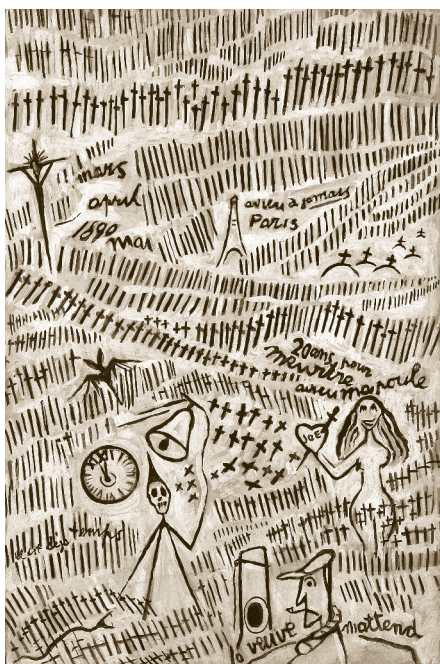 mars
april
1890
mai
adieu à jamais
Paris
20 ans pour
meurtre
adieu ma poule
JOE
temps
veuve
m'attend